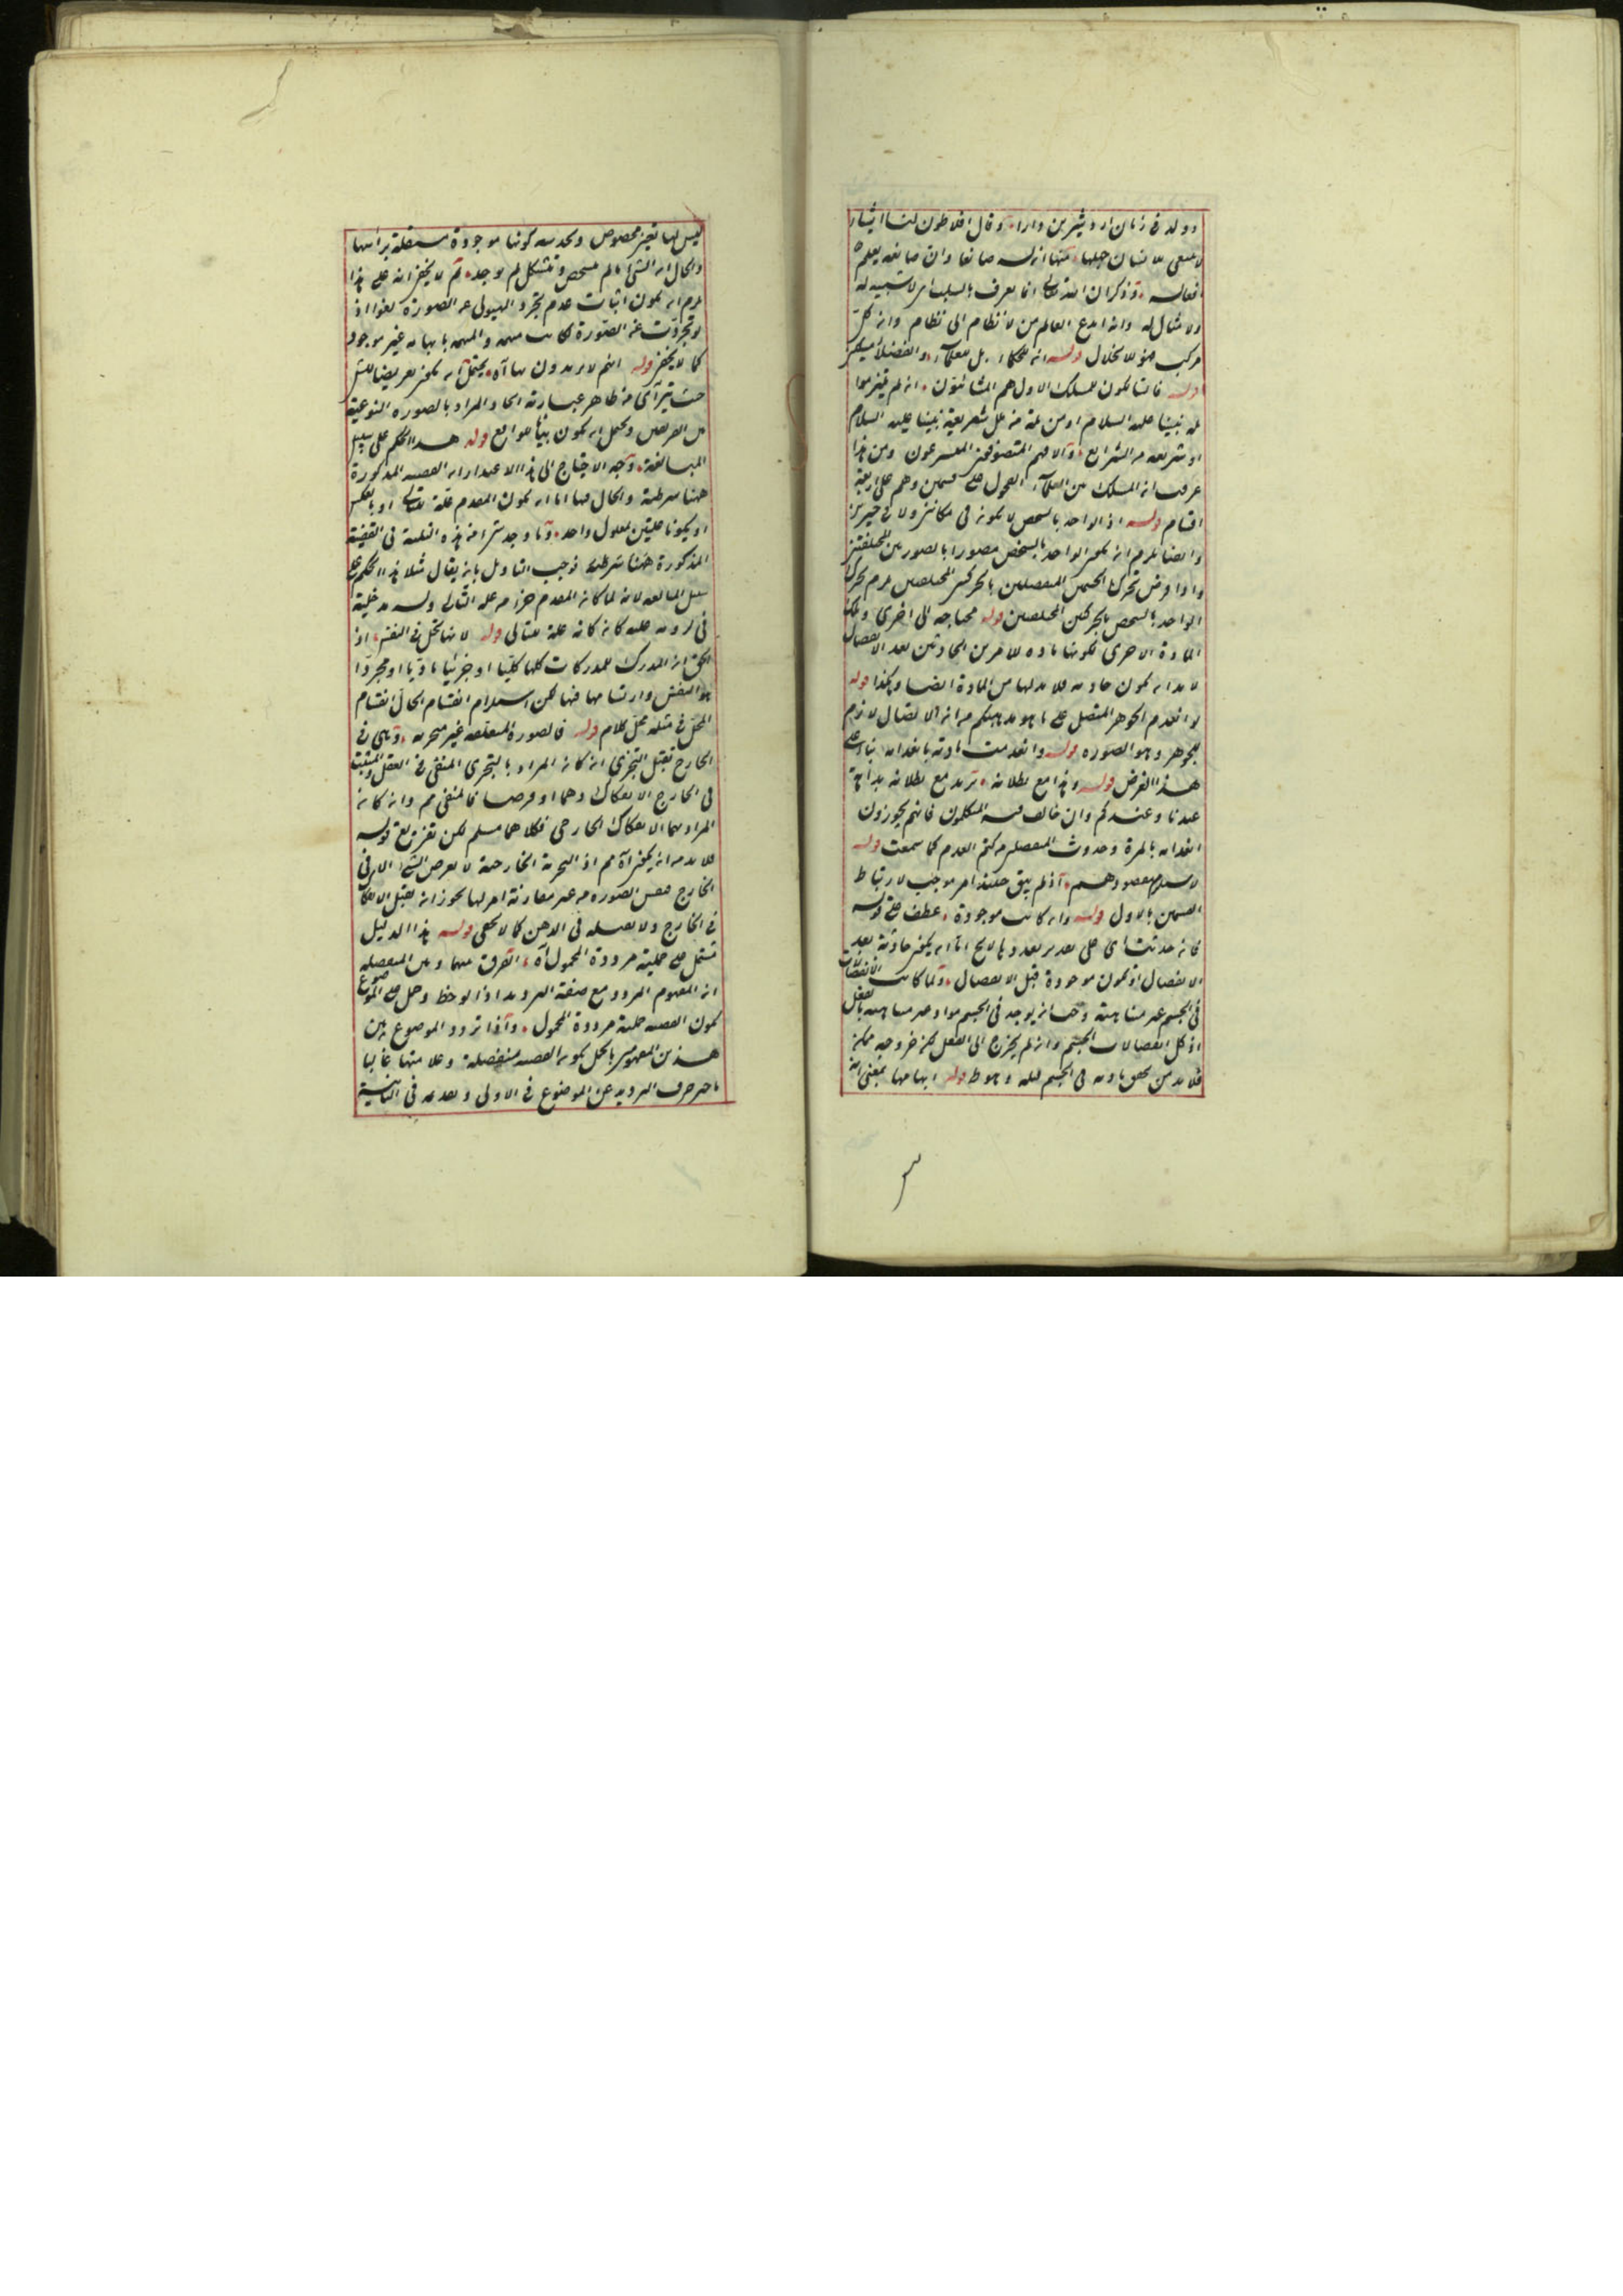 وولد في زمان اردشير بن دارا وقال افلاطون لنا اشياء
لا ينبغي للانسان جهلها منها انه له صانعا وان صانعه يعلم
افعاله وذكر ان الله تعالى انما يعرف بالسلب اي لا شبيه له
ولا مثال له وانه ابدع العالم من لا نظام الى نظام وانه كل
مركب فهو للانحلال قوله انه للحكماء بل للعلماء والفضلاء
قوله فالسالكون للمسلك الاول هم المشائيون انه لم يلتزموا
ملة نبينا عليه السلام او من ملة من ملل شريعة نبينا عليه السلام
او شريعة من الشرايع والا فهم المتصوفون المتشرعون ومن هذا
عرفت ان المسلك من العلماء الفحول على قسمين وهم على اربعة
اقسام قوله اذ الواحد بالشخص لا يكون في مكانين ولا في حيزين
وايضا يلزم انه يكون الواحد بالشخص مصورا بالصورتين المختلفتين
واذا فرض تحرك الجسمين المنفصلين بالحركتين المختلفتين يلزم تحرك
الواحد بالشخص بالحركتين المختلفتين قوله محتاجة الى اخرى
المادة الاخرى لكونها مادة للامرين الحادثين بعد الانفصال
لا بد ان يكون حادثة فلا بد لها من المادة ايضا وهكذا قوله
لو انعدم الجوهر المتصل على ما هو مذهبكم من انه الاتصال لازم
للجوهر وهو الصورة قوله وانعدمت مادته بانعدامه بناء على
هذا الفرض قوله وهذا مع بطلانه تريد مع بطلانه بداهة
عندنا وعندكم وان خالف فيه المتكلمون فانهم يجوزون
انعدامه بالمرة وحدوث المنفصلين من كتم العدم كما سمعت قوله
لا يستلزم مقصودهم اذ لم يبق حينئذ امر موجب لارتباط
القسمين بالاول قوله وان كانت موجودة عطف على قوله
فانه حدثت اي على تقدير تعددها لا يخ اما ان يكون حادثة بعد
الانفصال او تكون موجودة قبل الانفصال ولما كانت الانفصالات
في الجسم غير متناهية وجب ان يوجد في الجسم مواد غير متناهية بالفعل
اذ كل انفصالات الجسم وان لم يخرج الى الفعل لكن خروجه ممكن
فلا بد من تحقق مادته في الجسم قبله وهو ط قوله ابهامها بمعنى انه
ليس لها تعين مخصوص وكونها موجودة مستقلة براسها
والحال ان الشيء ما لم يتشخص وتشكل لم يوجد ثم لا يخفى انه على هذا
يلزم ان يكون اثبات عدم تجرد الهيولى عن الصورة لغوا اذ
لو تجردت عن الصورة لكانت مبهمة والمبهم بابهامه غير موجود
كما لا يخفى قوله انهم لا يريدون بها آه يحتمل ان يكون تعريضا
حيث يترآى من ظاهر عبارته اتحاد المراد بالصورة النوعية
من الفريقين ويحتمل ان يكون بينا للواقع قوله هذا الحكم على سبيل
المبالغة وجه الاحتياج الى هذا الاعتذار ان القضية المذكورة
ههنا شرطية والحال فيها اما ان يكون المقدم علة للتالي او بالعكس
او يكونا معلولين لعلول واحد وما وجد شيء من هذه الثلثة في القضية
المذكورة ههنا شرطية فوجب التاويل بان يقال مثلا هذا الحكم على
سبيل المبالغة لانه لما كان المقدم جزء من علة التالي وله مدخلية
في لزومه عليه كانه كان علة للتالي قوله لانها تحل في النفس اذ
الحق ان المدرك للمدركات كلها كليا او جزئيا ماديا او مجردا
هو النفس وارتسامها فيها لكن استلزام انقسام الحال انقسام
المحل في مثله محل كلام قوله فالصورة المتعقلة غير متجزية وما هي في
الخارج تقبل التجزي ان كان المراد بالتجزي المنفي في العقل والمثبت
في الخارج الانفكاك وهما او فرضا فالمنفي مم وان كان
المراد بهما الانفكاك الخارجي فكلاهما مسلم لكن تفريع قوله
فلا بد من ان يكون آه مم اذ التجزية الخارجية لا تعرض الشيء الا في
الخارج فنفس الصورة من غير مقارنة امر لها يجوز ان تقبل الانفكاك
في الخارج ولا تقبله في الذهن كما لا يخفى قوله هذا الدليل
مشتمل على حملية مرددة المحمول آه الفرق بينها وبين المنفصلة
ان المفهوم المردد مع صفة الترديد اذا لوحظ وحمل على الموضوع
تكون القضية حملية مرددة المحمول واذا تردد الموضوع بين
هذين المفهومين بالحمل تكون القضية منفصلة وعلامتها غالبا
تاخير حرف الترديد عن الموضوع في الاولى وتقدمه في الثانية